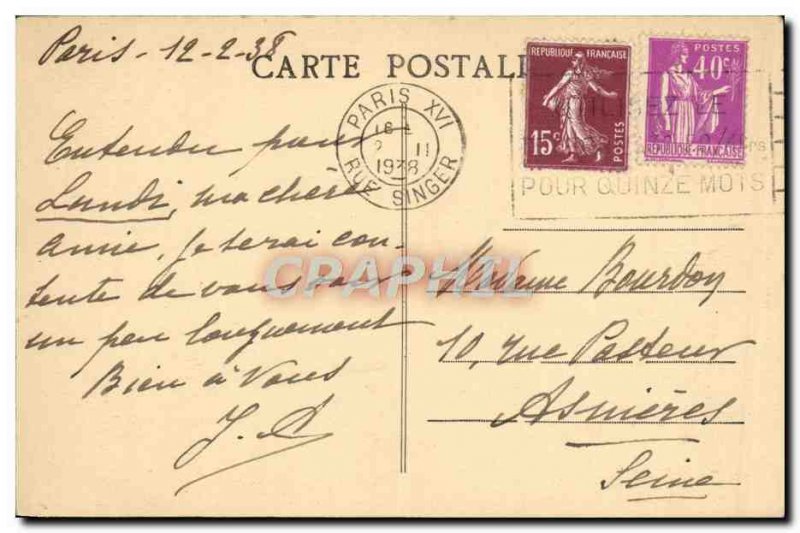 Paris - 12-2-38
CARTE POSTALE
REPUBLIQUE FRANÇAISE
15c
POSTES
POSTES
40c
REPUBLIQUE FRANÇAISE
PARIS XVI
1938
RUE SINGER
LE
POUR QUINZE MOTS
Entendu pour
Lundi, ma chère
amie, je serai con-
tente de vous voir
un peu longuement
Bien à Vous
CPAPHIL
Madame Bourdon
10, rue Pasteur
Asnières
Seine